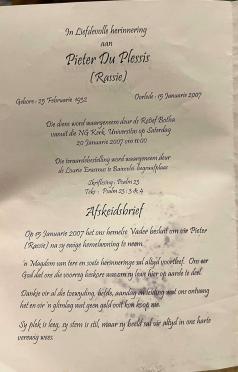 In Liefdevolle herinnering
aan
Pieter Du Plessis
(Rassie)
Gebore : 25 Februarie 1952
Oorlede : 15 Januarie 2007
Die diens word waargeneem deur ds Retief Botha
vanuit die NG Kerk, Universitas op Saterdag
20 Januarie 2007 om 11:00
Die teraardebestelling word waargeneem deur
ds Laurie Erasmus te Bainsvlei begraafplaas
Skriflesing : Psalm 23
Teks : Psalm 23 : 3 & 4
Afskeidsbrief
Op 15 Januarie 2007 het ons hemelse Vader besluit om vir Pieter
(Rassie) na sy ewige hemelwoning te neem.
'n Magdom van tere en soete herinneringe sal altyd voortleef. Ons eer
God dat ons die voorreg beskore was om sy lewe hier op aarde te deel.
Dankie vir al die toewyding, liefde, aandag en leiding wat ons ontvang
het en vir 'n glimlag wat geen geld ooit kon koop nie.
Sy plek is leeg, sy stem is stil, maar sy beeld sal vir altyd in ons harte
verewig wees.